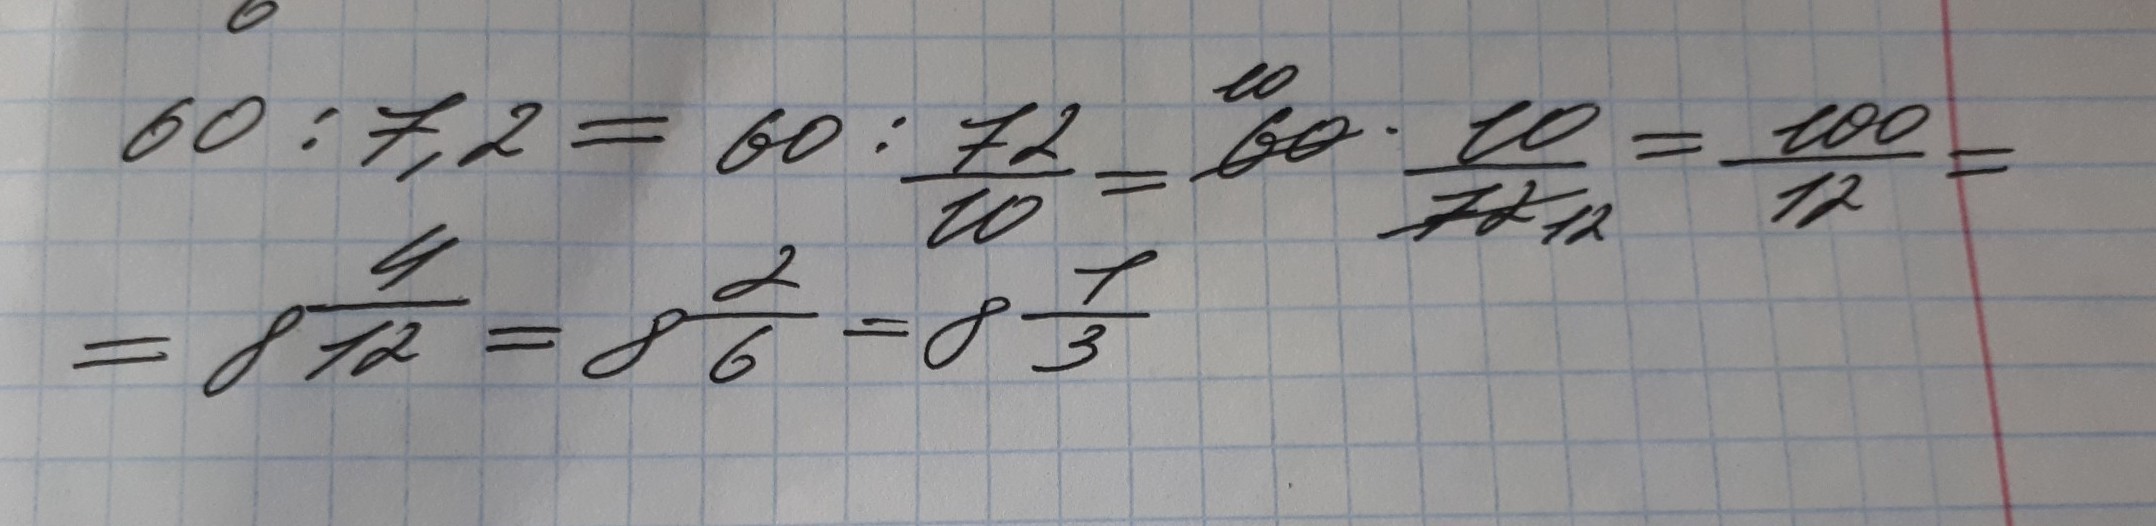 60 : 7,2 = 60 : 72/10 = 60 10 · 10/72 12 = 100/12 =
= 8 4/12 = 8 2/6 = 8 1/3